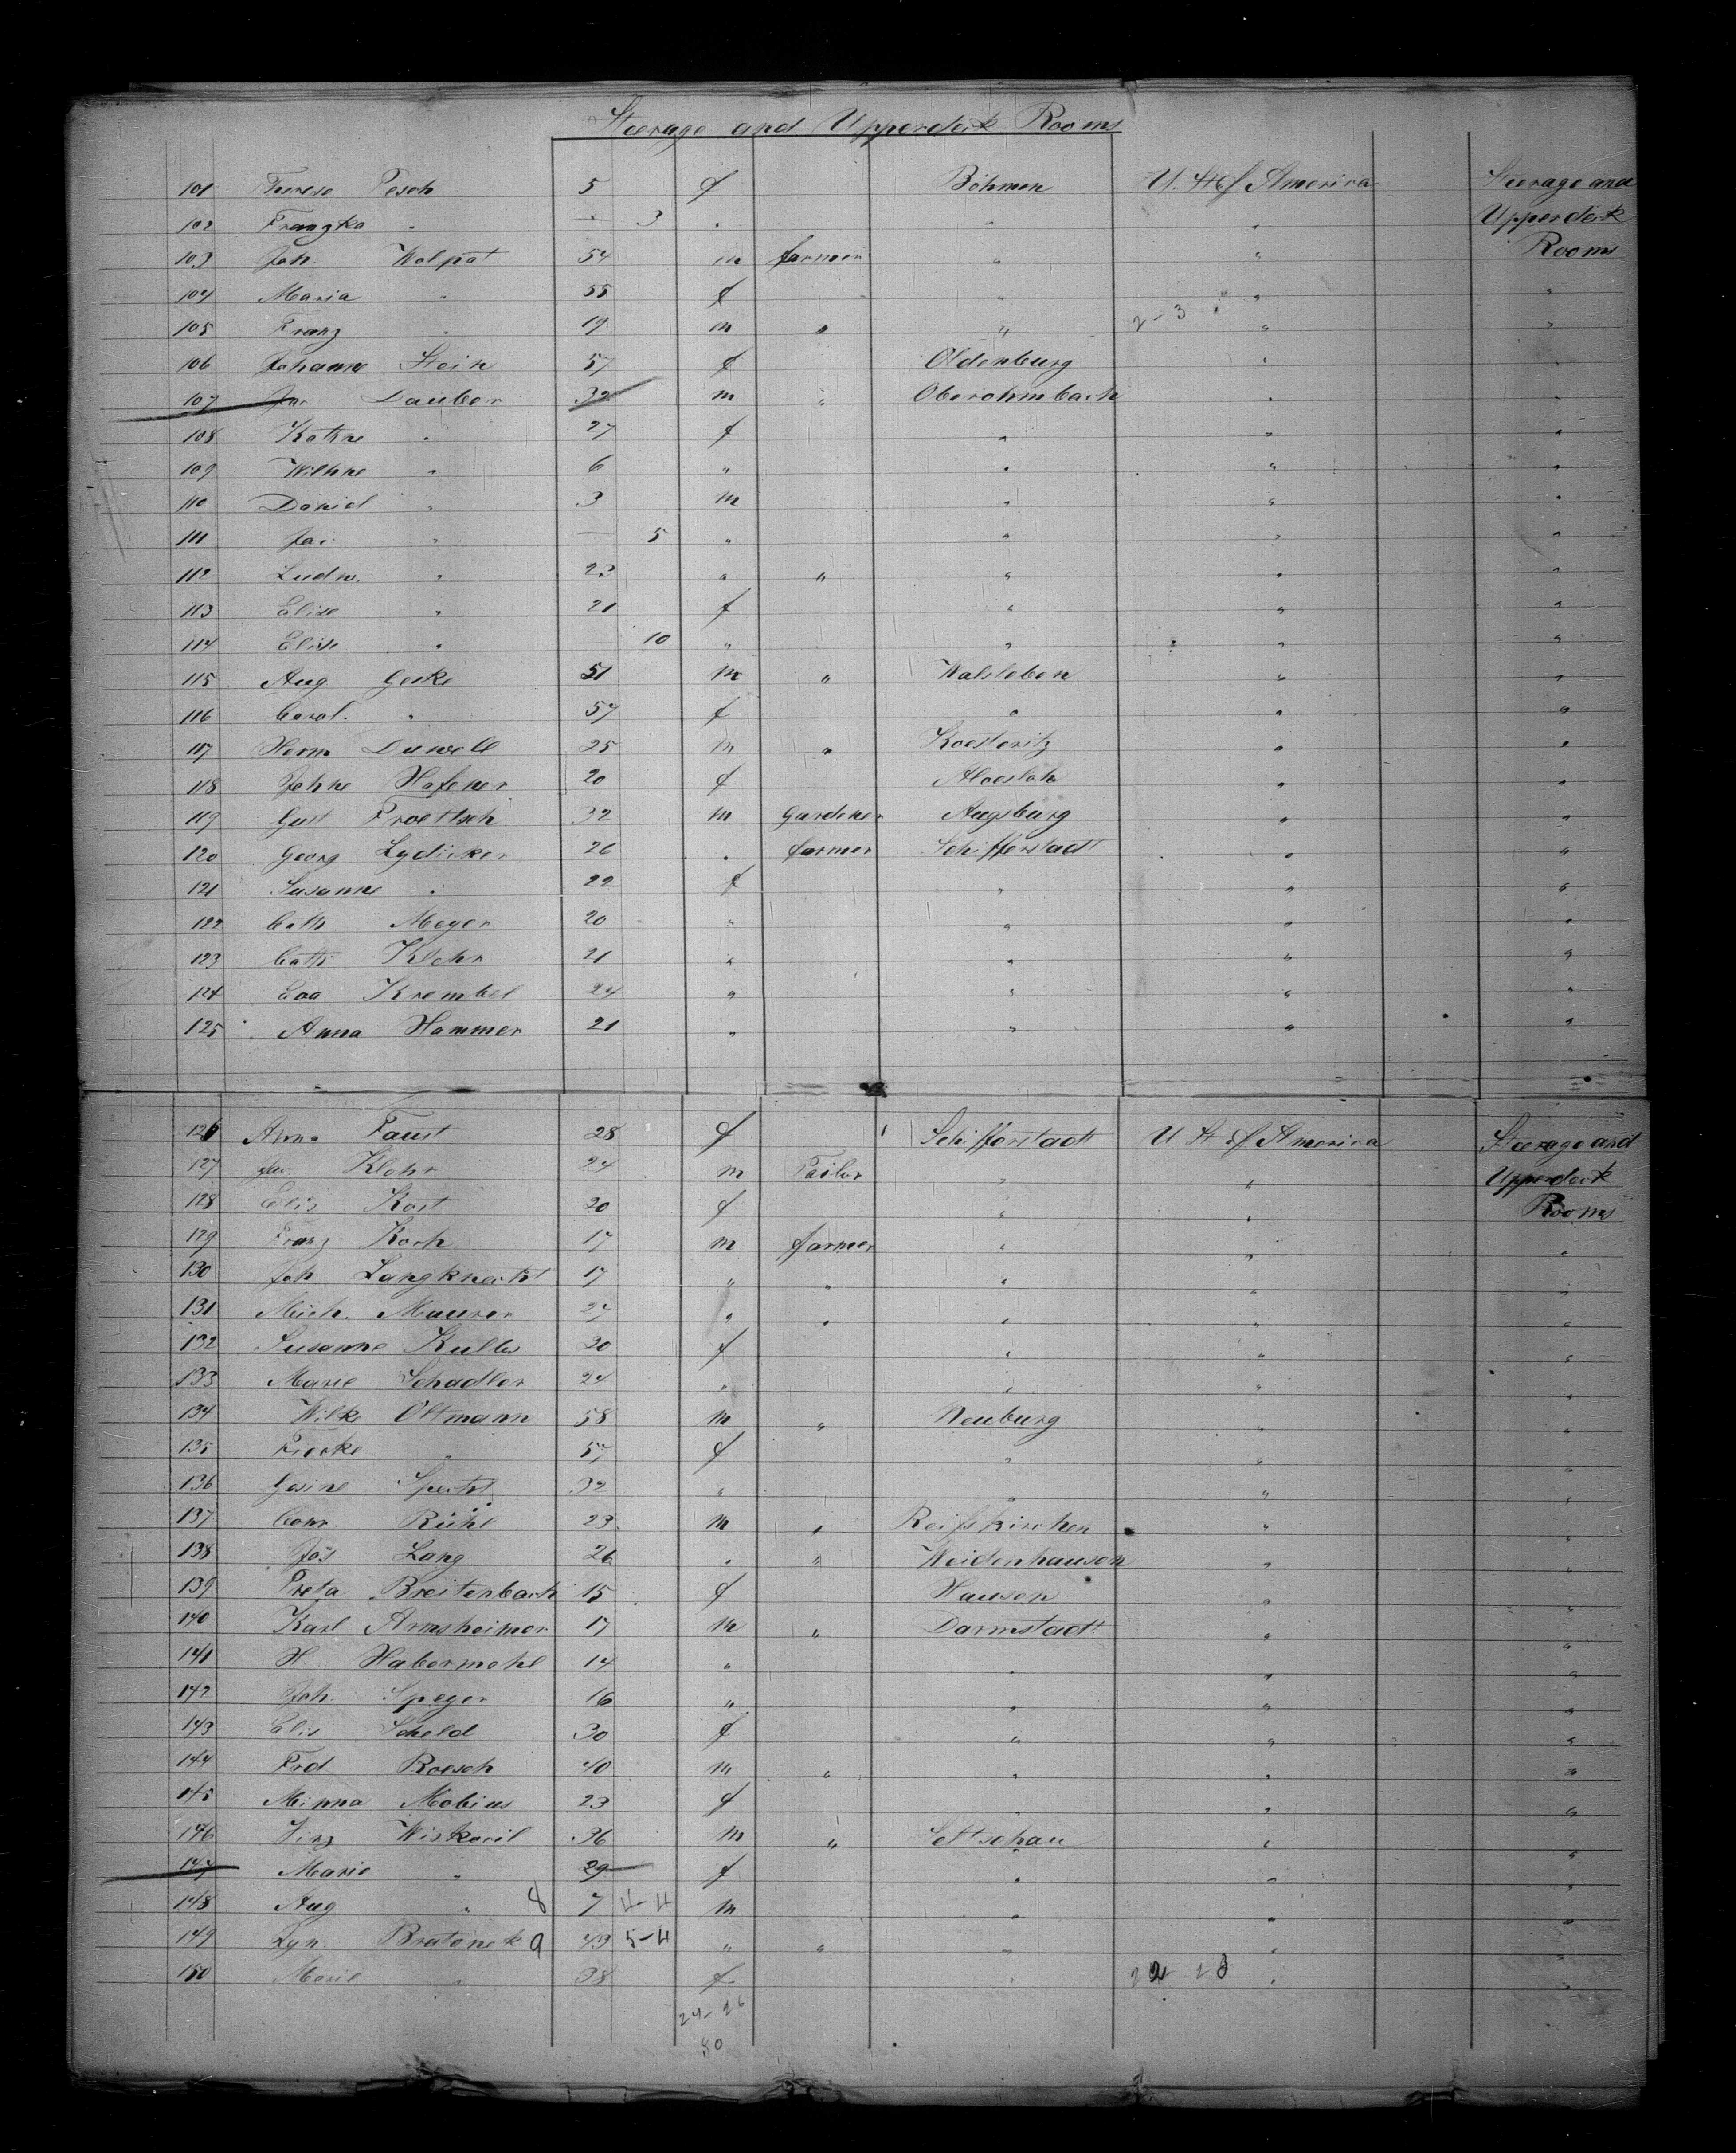 Steerage and Upperdeck Rooms
101 Therese Pesch 5 f Böhmen U. St of America Steerage and
102 Franzka " — 3 " " " Upperdeck
103 Joh. Walpat 54 m farmer " " Rooms
104 Maria " 55 f " " "
105 Franz " 19 m " " 2-3 " "
106 Johanne Stein 57 f Oldenburg " "
107 Dauber 32 m " Oberohmbach " "
108 Kathne " 27 f " " "
109 Wilhne " 6 " " " "
110 Daniel " 3 m " " "
111 Jac " — 5 " " " "
112 Ludw. " 23 " " " " "
113 Elise " 21 f " " "
114 Elise " — 10 " " " "
115 Aug Geske 51 m " Walsleben " "
116 Carol. " 57 f " " "
117 Herm Duwell 25 m " Koesteritz " "
118 Johne Hafener 20 f " "
119 Gust Proettsch 32 m Gardener Augsburg " "
120 Georg Lydicker 26 " farmer Schifferstadt " "
121 Susanne " 22 f " " "
122 Cath Meyer 20 " " " "
123 Cath Klohr 21 " " " "
124 Eva Krembel 24 " " " "
125 Anna Hammer 21 " " " "
126 Anna Faust 28 f Schifferstadt U St of America Steerage and
127 Jac. Klohr 24 m Tailor " " Upperdeck
128 Elis Kost 20 f " " Rooms
129 Franz Koch 17 m farmer " " "
130 Joh Langknecht 17 " " " " "
131 Mich. Maurer 27 " " " " "
132 Susanne Kuller 20 f " " "
133 Marie Schadler 24 " " " "
134 Wilke Oltmann 58 m " Neuburg " "
135 " 57 f " " "
136 Gesine Specht 32 " " " "
137 Conr. Rühl 23 m " Reifskirchen " "
138 Jos Lang 26 " " Weidenhausen " "
139 Greta Breitenbach 15 f Hausen " "
140 Karl Armsheimer 17 m " Darmstadt " "
141 H Habermehl 14 " " " "
142 Joh. Speyer 16 " " " "
143 Elis Scheld 30 f " " "
144 Frd Roesch 40 m " " " "
145 Minna Mobius 23 f " " "
146 Vinz Wiskocil 36 m " Lettschau " "
147 Marie " 29 f " " "
148 Aug " 8 7 4-4 m " " "
149 Bratanek 9 43 5-4 " " " " "
150 Marie " 38 f " 22 23 " "
24-26
80